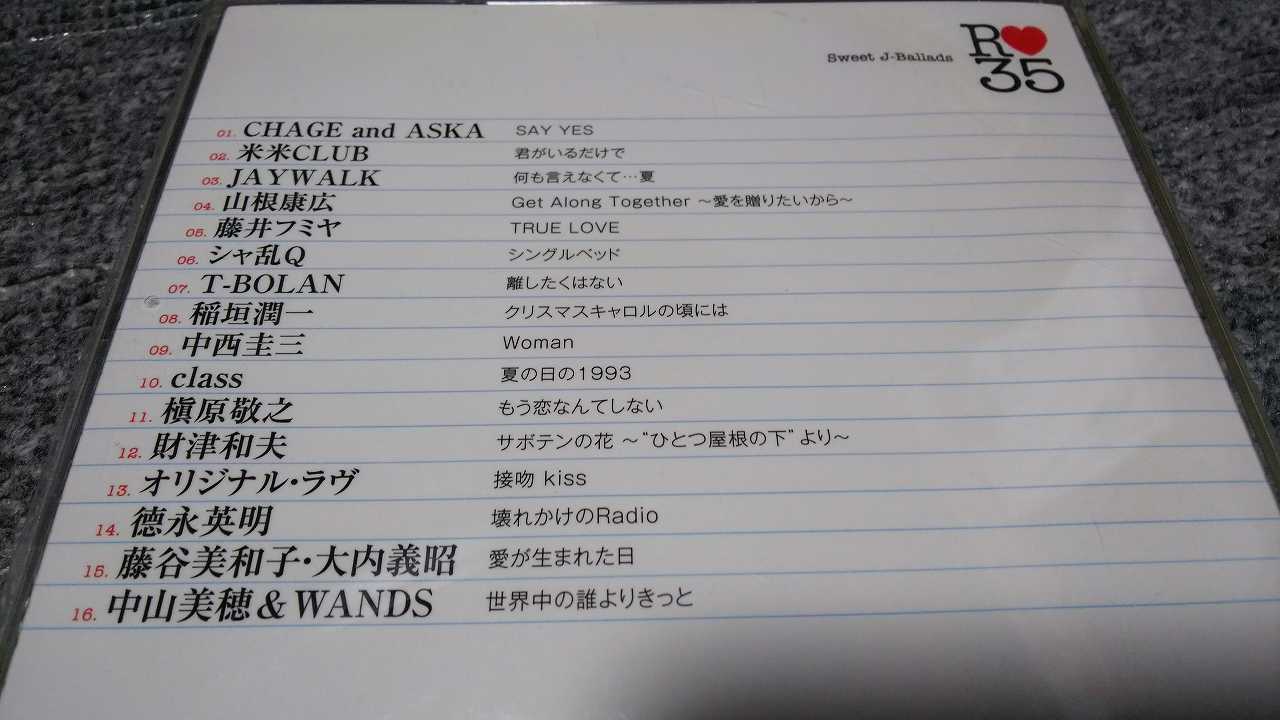 Sweet J-Ballads R♥35
01. CHAGE and ASKA SAY YES
02. 米米CLUB 君がいるだけで
03. JAYWALK 何も言えなくて…夏
04. 山根康広 Get Along Together ～愛を贈りたいから～
05. 藤井フミヤ TRUE LOVE
06. シャ乱Q シングルベッド
07. T-BOLAN 離したくはない
08. 稲垣潤一 クリスマスキャロルの頃には
09. 中西圭三 Woman
10. class 夏の日の1993
11. 槇原敬之 もう恋なんてしない
12. 財津和夫 サボテンの花 ～“ひとつ屋根の下”より～
13. オリジナル・ラヴ 接吻 kiss
14. 德永英明 壊れかけのRadio
15. 藤谷美和子・大内義昭 愛が生まれた日
16. 中山美穂&WANDS 世界中の誰よりきっと